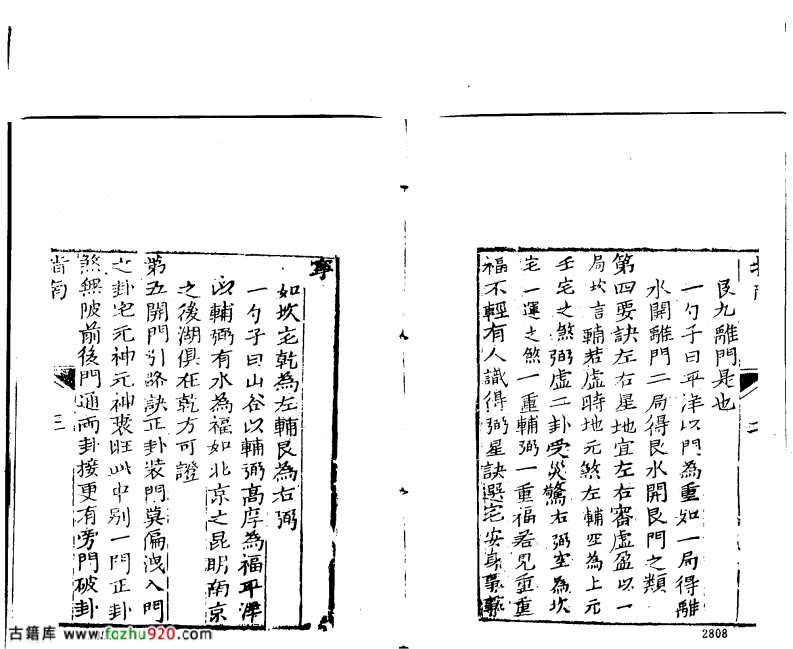 艮九離門是也
一勺子曰平洋以門為重如一局得離
水開離門二局得艮水開艮門之類
第四要訣左右星地宜左右審虛盈以一
局坎言輔若虛時地元煞左輔空為上元
壬宅之煞弼虛二卦受災驚右弼空為坎
宅一運之煞一重輔弼一重福若見重重
福不輕有人識得弼星訣選宅安身
二
2808
寧
如坎宅乾為左輔艮為右弼
一勺子曰山谷以輔弼高厚為福平洋
以輔弼有水為福如北京之昆明南京
之後湖俱在乾方可證
第五開門引路訣正卦裝門莫偏洩入門
之卦宅元神元神衰旺此中別一門正卦
煞無陂前後門通兩卦接更有旁門破卦
指南
三
古籍库 www.fozhu920.com